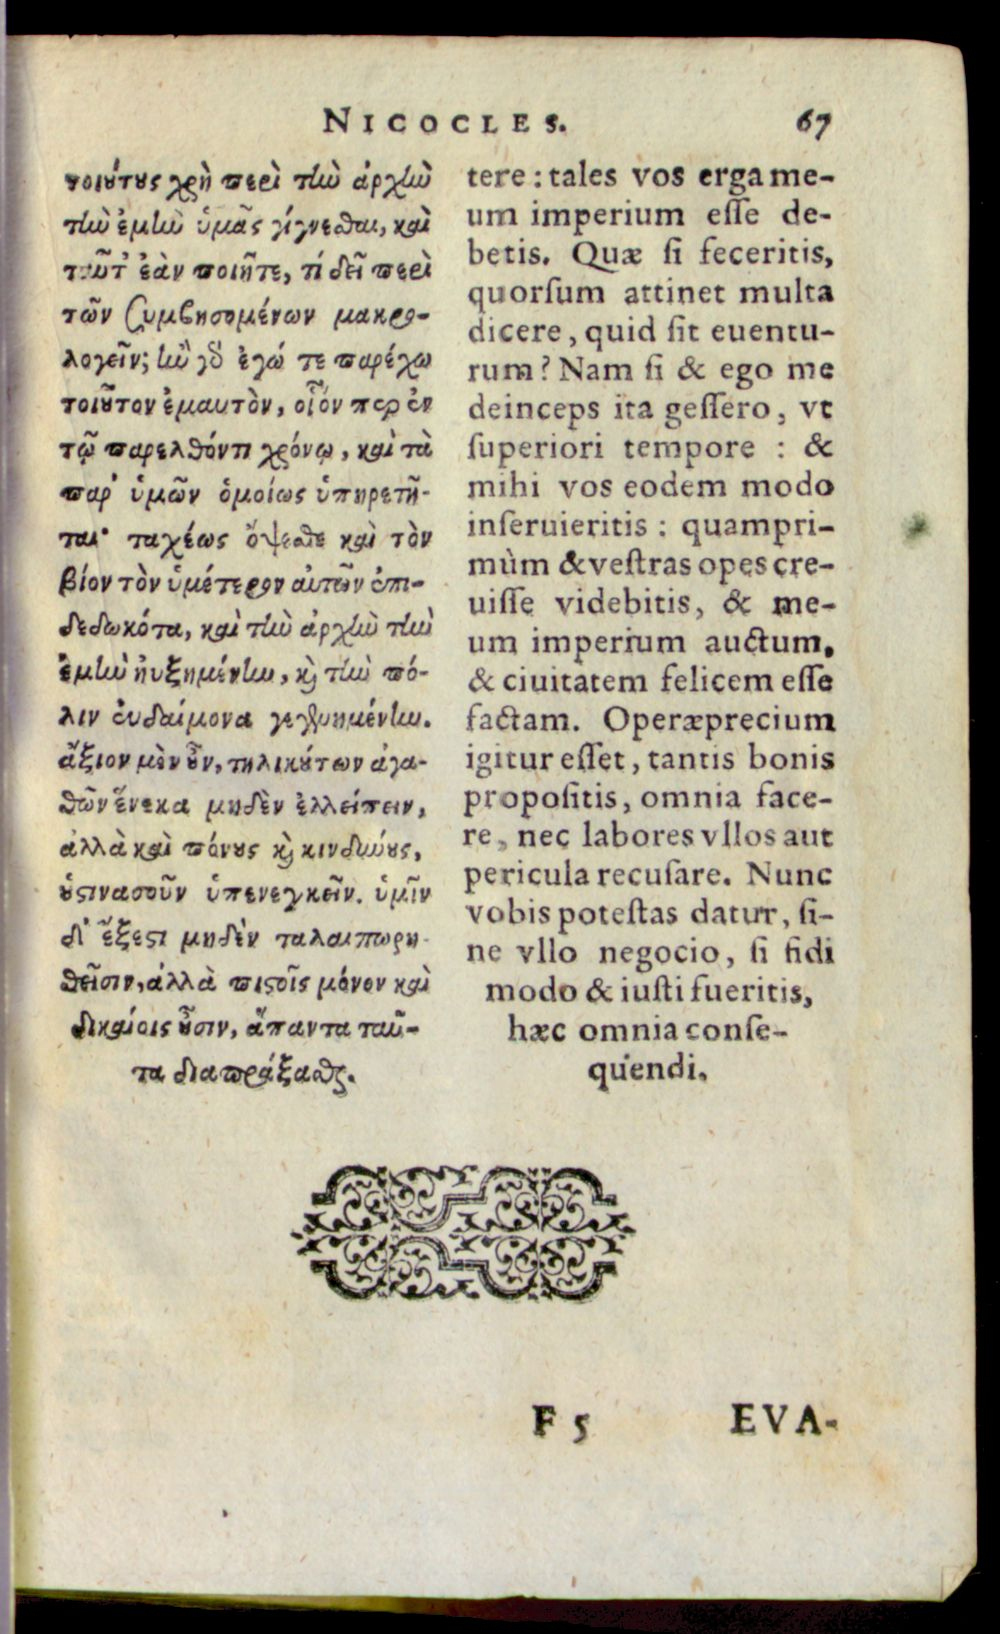 NICOCLES. 67
τοιούτους χρὴ περὶ τὴν ἀρχὴν
τὴν ἐμὴν ὑμᾶς γίγνεσθαι, καὶ
ταῦτ' ἐὰν ποιῆτε, τί δεῖ περὶ
τῶν συμβησομένων μακρο-
λογεῖν; ἢν γὸ ἐγώ τε παρέχω
τοιοῦτον ἐμαυτὸν, οἷόν περ ἐν
τῷ παρελθόντι χρόνῳ, καὶ τὰ
παρ' ὑμῶν ὁμοίως ὑπηρετῆ-
ται· ταχέως ὄψεσθε καὶ τὸν
βίον τὸν ὑμέτερον αὐτῶν ἐπι-
δεδωκότα, καὶ τὴν ἀρχὴν τὴν
ἐμὴν ηὐξημένην, κὶ τὴν πό-
λιν εὐδαίμονα γεγενημένην.
ἄξιον μὲν οὖν, τηλικούτων ἀγα-
θῶν ἕνεκα μηδὲν ἐλλείπειν,
ἀλλὰ καὶ πόνους κὶ κινδύνους,
οὑστινασοῦν ὑπενεγκεῖν. ὑμῖν
δ' ἔξεστι μηδὲν ταλαιπωρη-
θεῖσιν, ἀλλὰ πιστοῖς μόνον καὶ
δικαίοις οὖσιν, ἅπαντα ταῦ-
τα διαπράξασθαι.
tere : tales vos erga me-
um imperium esse de-
betis. Quæ si feceritis,
quorsum attinet multa
dicere, quid sit euentu-
rum? Nam si & ego me
deinceps ita gessero, vt
superiori tempore : &
mihi vos eodem modo
inseruieritis : quampri-
mùm & vestras opes cre-
uisse videbitis, & me-
um imperium auctum,
& ciuitatem felicem esse
factam. Operæprecium
igitur esset, tantis bonis
propositis, omnia face-
re, nec labores vllos aut
pericula recusare. Nunc
vobis potestas datur, si-
ne vllo negocio, si fidi
modo & iusti fueritis,
hæc omnia conse-
quendi.
F 5 EVA-